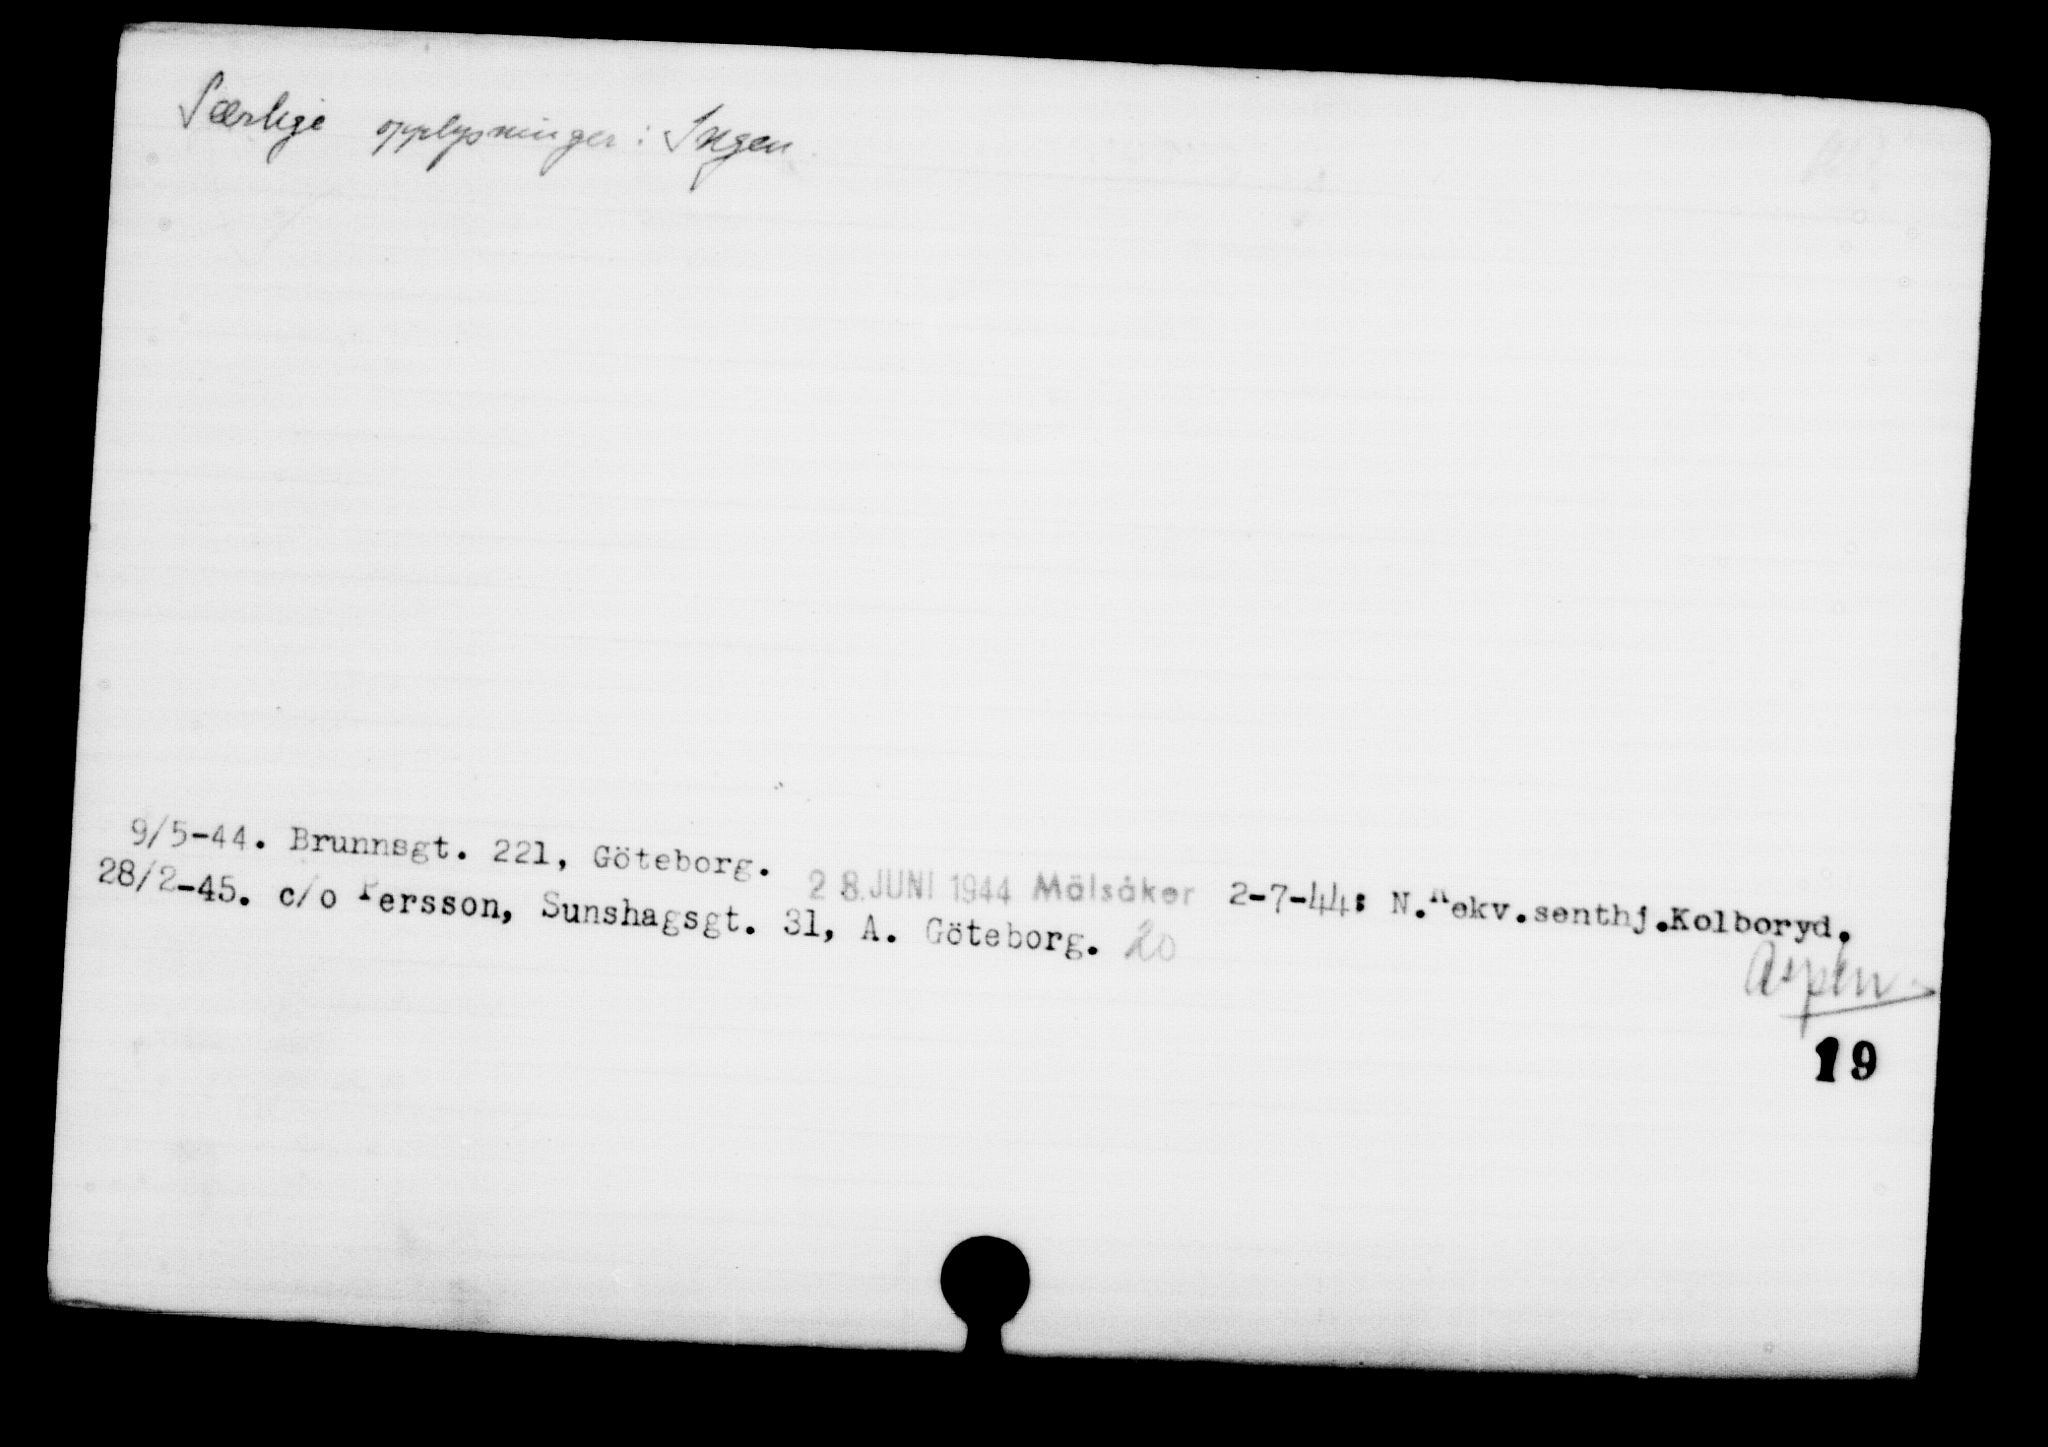 Særlige opplysninger: Ingen
9/5-44. Brunnsgt. 221, Göteborg. 28. JUNI 1944 Mälsåker 2-7-44: N.Rekv.senthj.Kolboryd.
28/2-45. c/o Persson, Sunshagsgt. 31, A. Göteborg. 20
Aspen
19